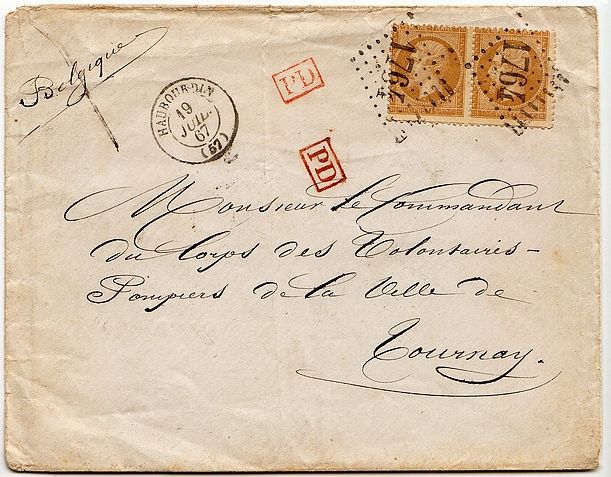 Belgique
HAUBOURDIN
19
JUIL.
67
(57)
PD
PD
1764
1764
Monsieur le Commandant
du Corps des Volontaires-
Pompiers de la Ville de
Tournay.